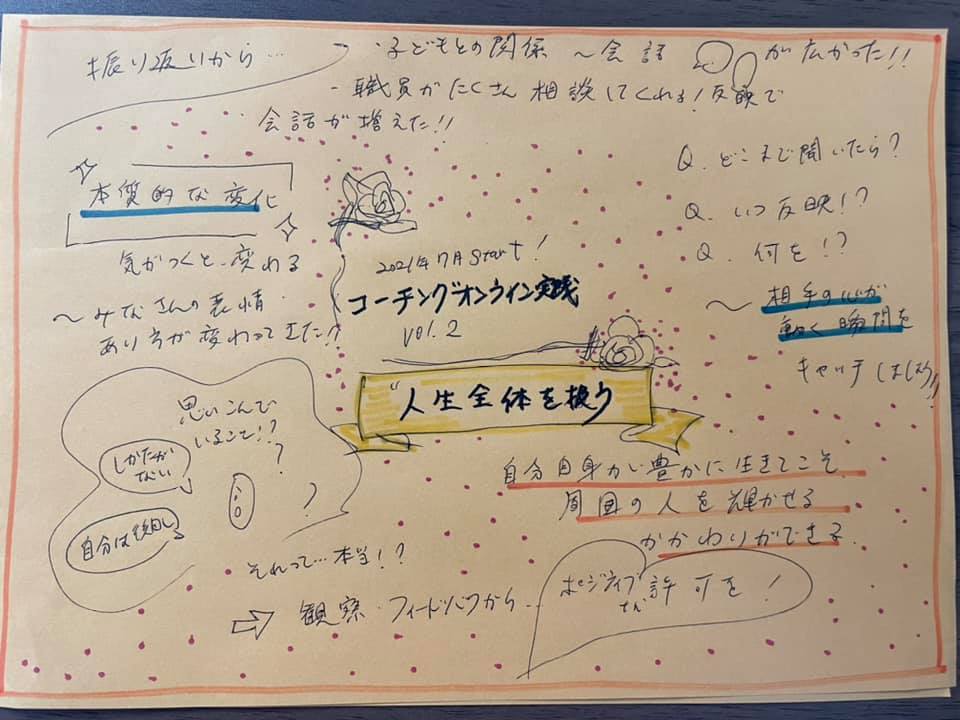 振り返りから…
・子どもとの関係 〜会話 が広がった!!
・職員がたくさん相談してくれる!反映で
会話が増えた!!
本質的な変化
気がつくと、変わる
〜みなさんの表情・
あり方が変わってきた!?
2021年7月start!
コーチングオンライン実践
vol.2
"人生全体を扱う
Q. どこまで聞いたら?
Q. いつ反映!?
Q. 何を!?
〜相手の心が
動く瞬間を
キャッチしましょう!!
思いこんで
いること!?
?
?
しかたが
ない
自分は後回し
それって…本当!?
⇨ 観察・フィードバックから…
自分自身が豊かに生きてこそ
周囲の人を輝かせる
かかわりができる.
ポジティブ
許可を!